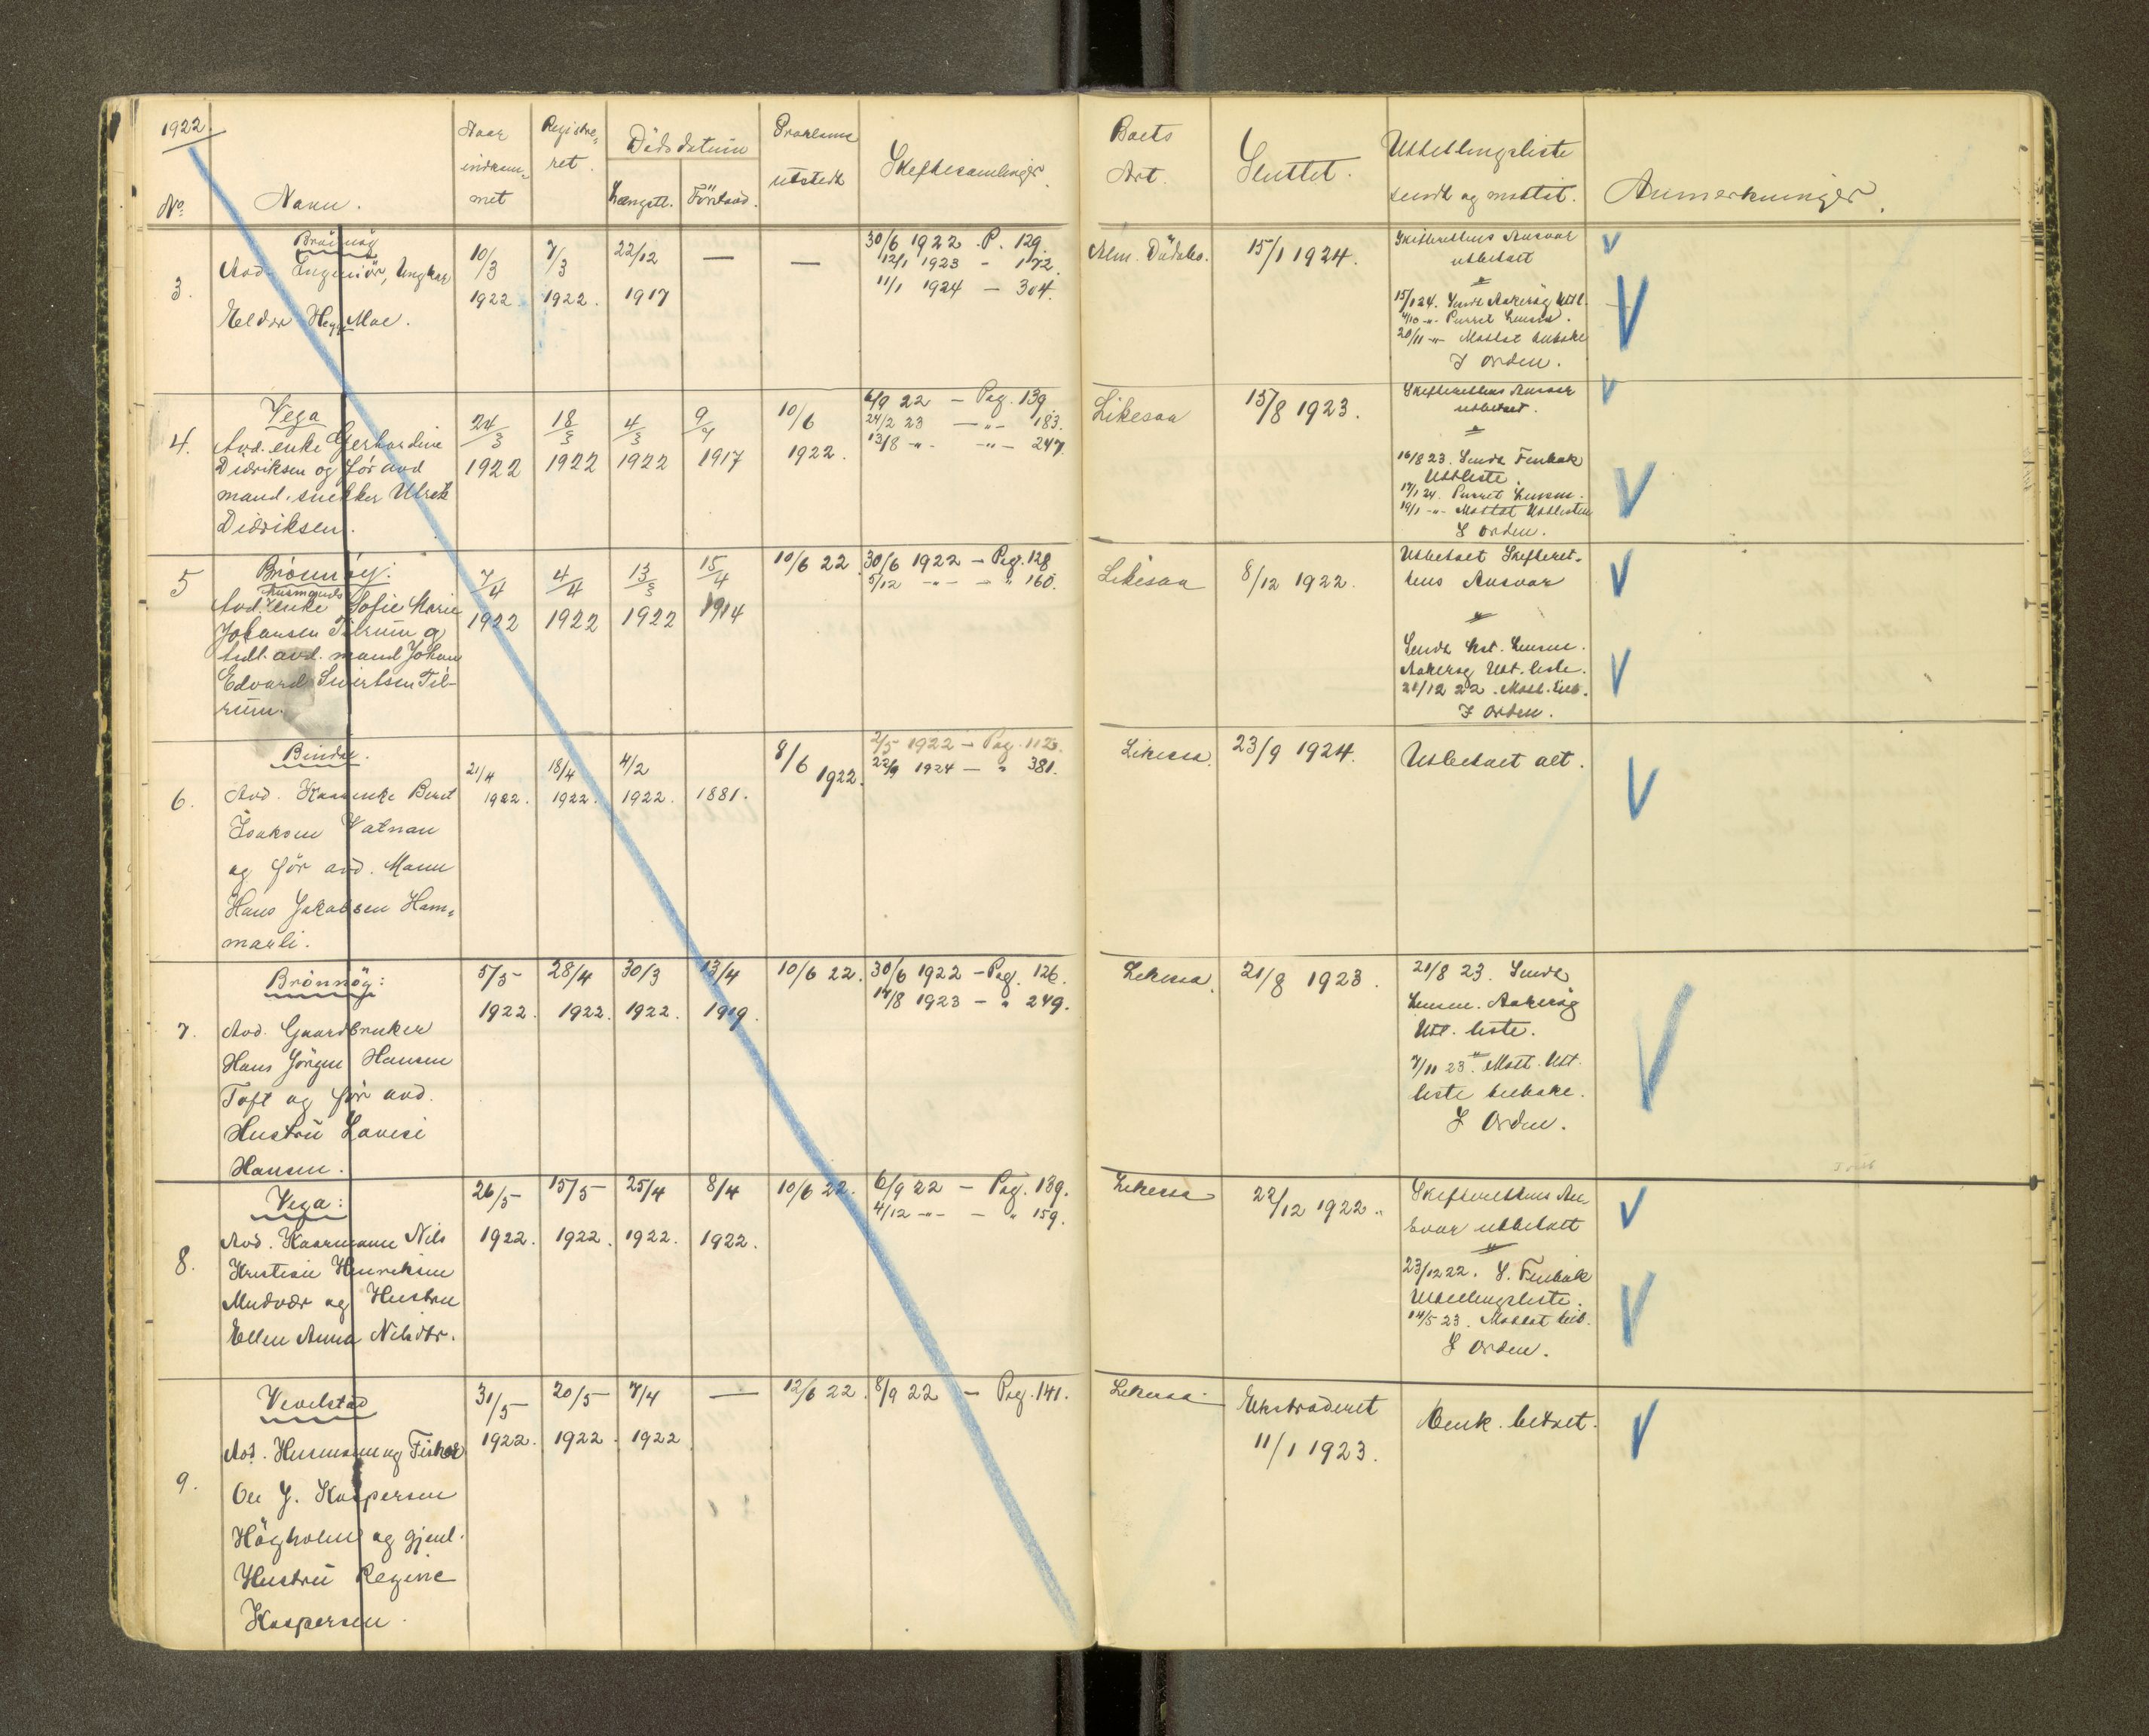 1922.
No.
Navn.
Naar
indkom-
met
Registre-
ret.
Dødsdatum
Længstl.
Førstavd.
Proklama
utstedt
Skiftesamlinger.
Boets
Art.
Sluttet.
Utdelingsliste
sendt og mottat.
Anmerkninger.
3.
Brönnöy
Avd. Ingeniör, Ungkar
Moe.
10/3
1922
7/3
1922.
22/12
1917
—
—
30/6 1922. P. 129.
12/1 1923 - 172.
11/1 1924 - 304.
Alm. Dödsbo.
15/1 1924.
Skifterettens Ansvar
utbetalt
15/1 24. Sendt Aakerøy Utl.
Purret Lensm.
20/11 -"- Mottat tilbake
I orden.
4.
Vega
Avd. enke Gerhardine
Didriksen og før avd
mand, snekker Ulrik
Didriksen.
24/3
1922
18/3
1922
4/3
1922
9/7
1917
10/6
1922.
6/9 22 - Pag. 139
24/2 23 -"- 183.
13/8 -"- -"- 247
Likesaa
15/8 1923.
Skifterettens Ansvar
utbetalt.
16/8 23. Sendt Finbak
Utdliste.
17/1 24. Purret Lensm.
19/1 -"- Mottat Utdlisten
I orden.
5
Brönnöy:
husmands
Avd. enke Sofie Marie
Johansen Tilrum og
tidl. avd. mand Johan
Edvard Sivertsen Til-
rum.
7/4
1922
4/4
1922
13/3
1922
15/4
1914
10/6 22.
30/6 1922 - Pag. 128
5/12 -"- - " 160.
Likesaa
8/12 1922.
Utbetalt Skifteret-
tens Ansvar
Sendt Kst. Lensm.
Aakerøy Utd. liste.
21/12 22. Mott. tilb.
I orden.
6.
Bindal.
Avd. Kaarenke Beret
Isaksen Vatnan
og för avd. Mann
Hans Jakobsen Ham-
marli.
21/4
1922.
18/4
1922.
4/2
1922.
1881.
8/6 1922.
2/5 1922 - Pag. 112.
22/9 1924 - " 381.
Likesaa.
23/9 1924.
Utbetalt alt.
7.
Brönnöy:
Avd. Gaardbruker
Hans Jörgen Hansen
Toft og för avd.
Hustru Lovise
Hansen.
5/5
1922.
28/4
1922.
30/3
1922.
13/4
1919.
10/6 22.
30/6 1922 - Pag. 126.
14/8 1923 - " 249.
Likesaa.
21/8 1923.
21/8 23. Sendt
Lensm. Aakeröy
Utd. liste.
7/11 23. Mott. Utd.
liste tilbake.
I Orden.
8.
Vega:
Avd. Kaarmann Nils
Kristian Henriksen
Mudvær og Hustru
Ellen Anna Nilsdtr.
26/5
1922.
15/5
1922.
25/4
1922.
8/4
1922.
10/6 22.
6/9 22 - Pag. 139.
4/12 -"- - " 159.
Likesaa
22/12 1922.
Skifterettens An-
svar utbetalt
23/12 22. S. Finbak
Utdelingsliste.
14/5 23. Mottat tilb.
I orden.
9.
Vevelstad
Avd. Husmann og Fisker
Ole J. Kaspersen
Högholm og gjenl.
Hustru Regine
Kaspersen.
31/5
1922.
20/5
1922.
7/4
1922
—
12/6 22.
8/9 22 - Pag. 141.
Likesaa
Ekstraderet
11/1 1923.
Omk. betalt.